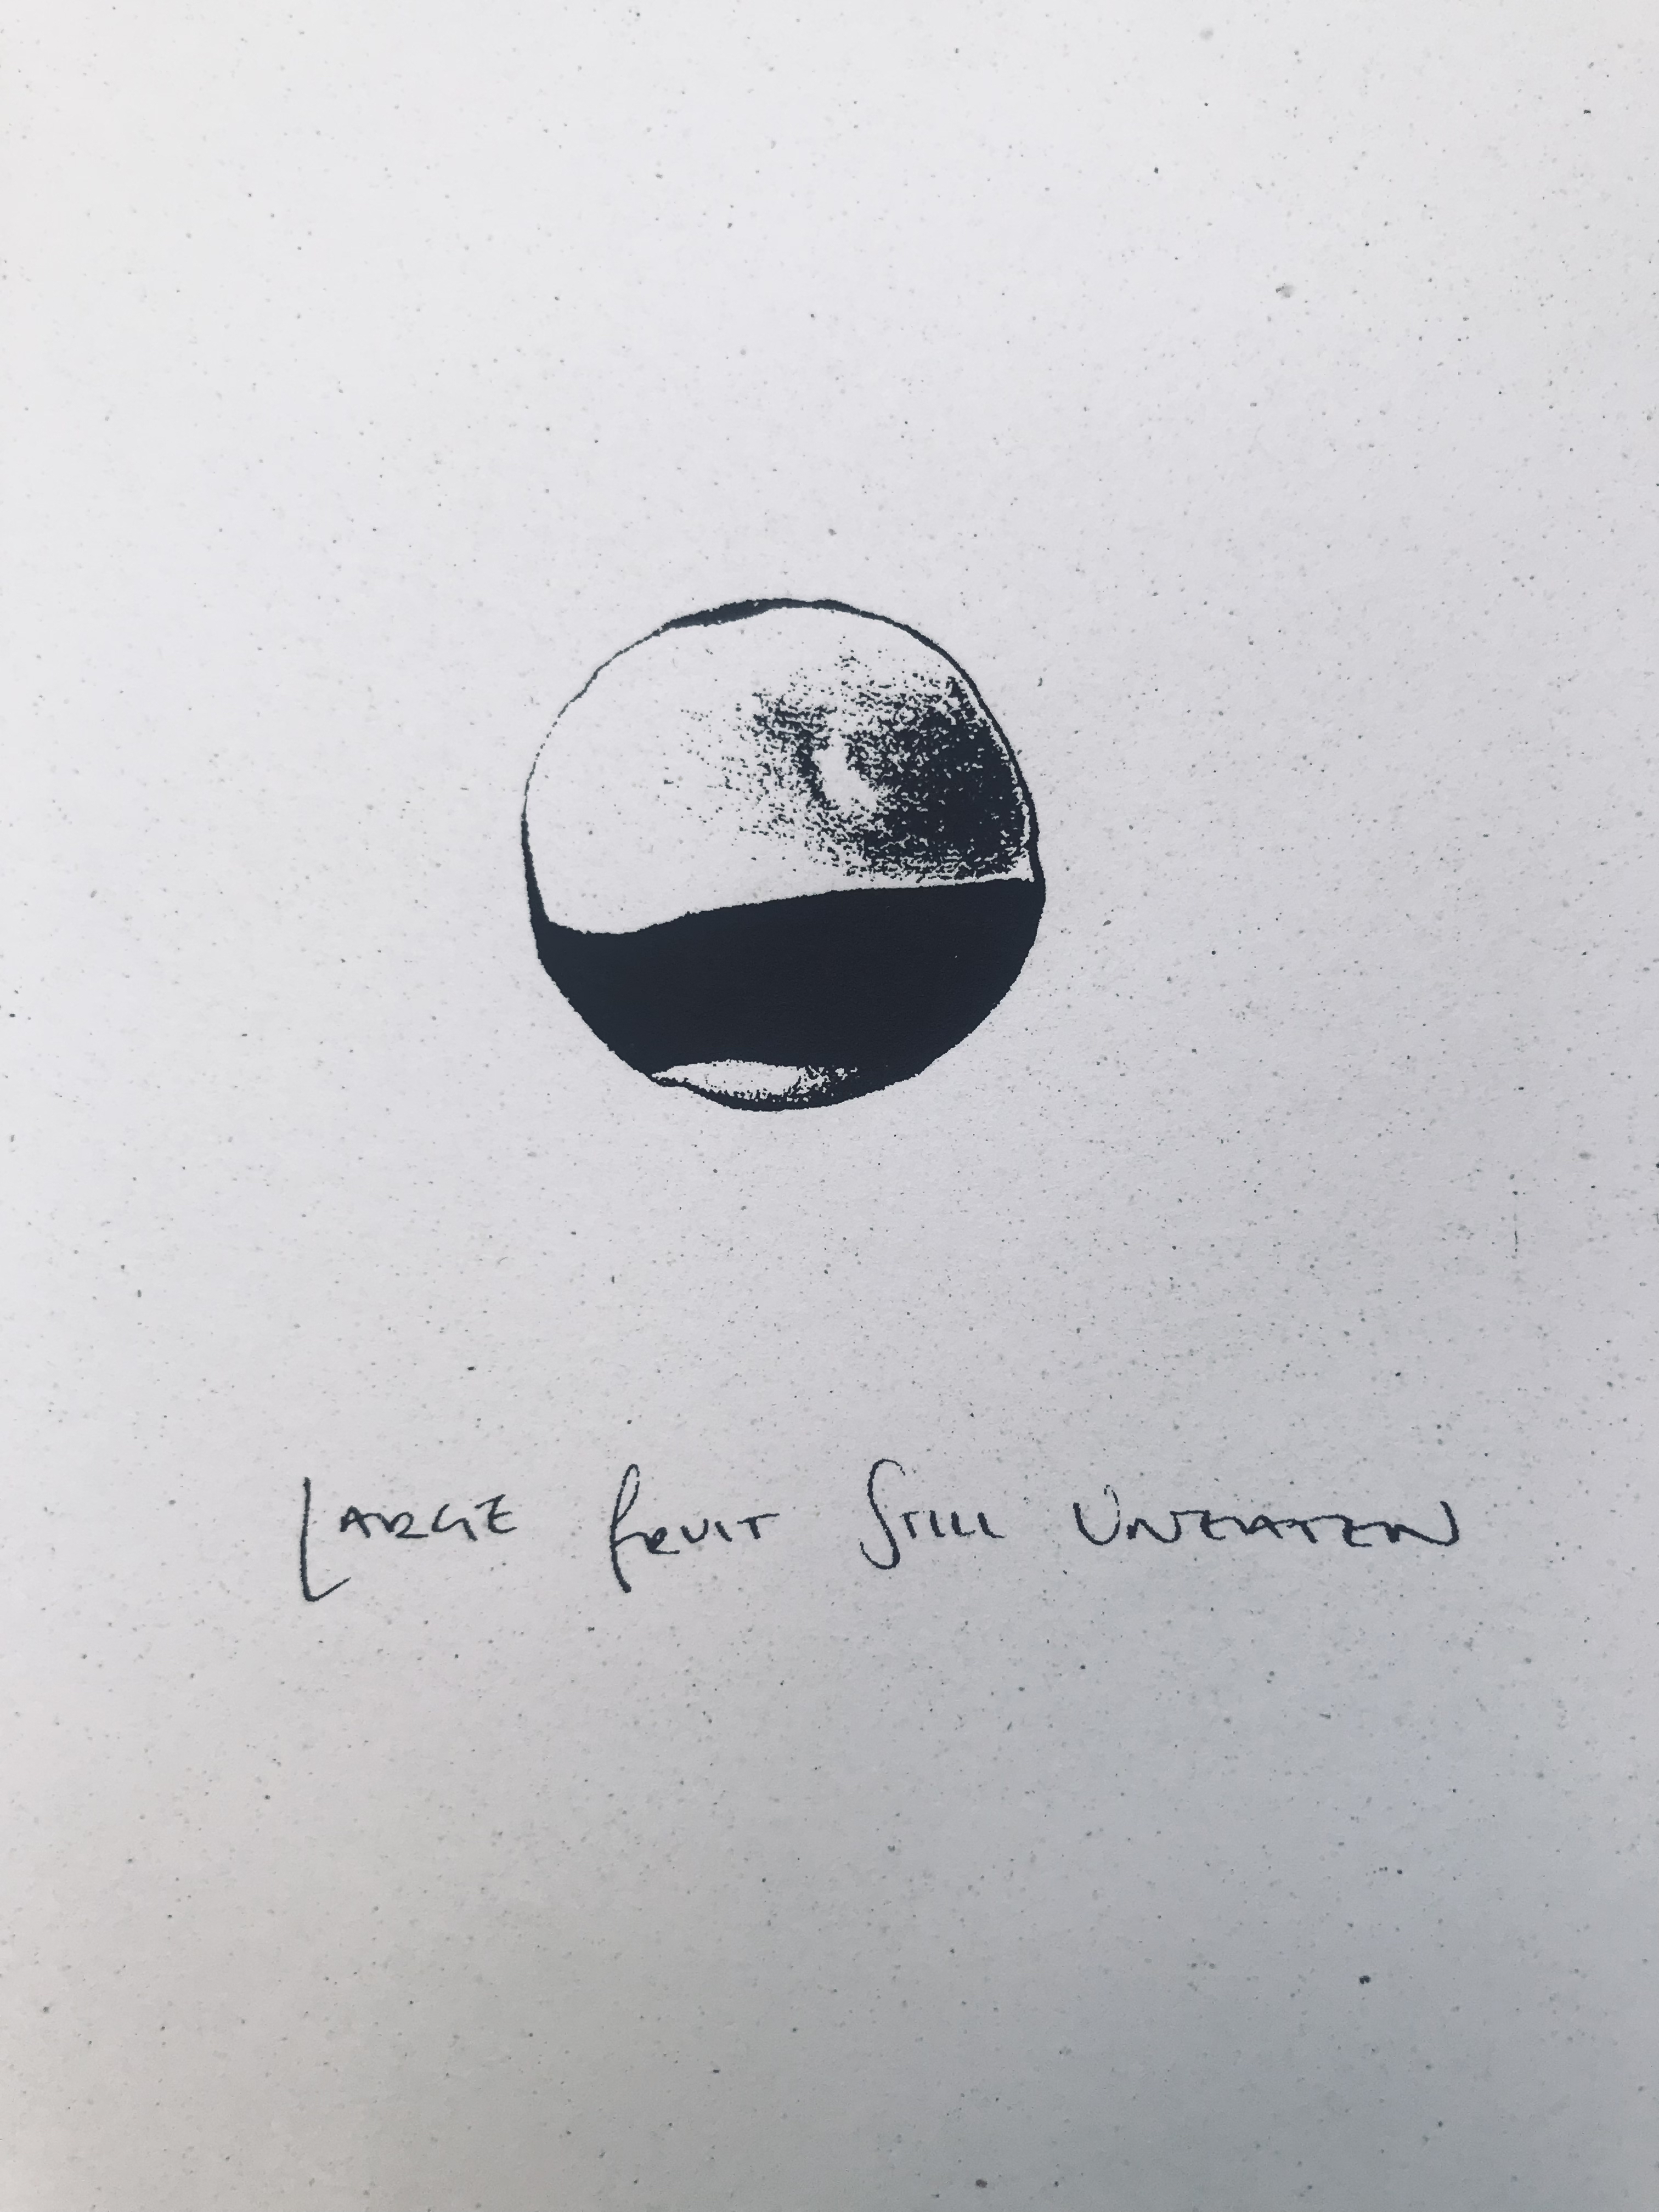 LARGE FRUIT STILL UNEATEN